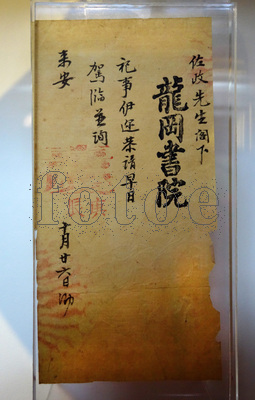 佐政先生閣下
龍岡書院
祀事伊迩恭請早日
駕臨並詢
来安
十月廿六日泐
fotoe